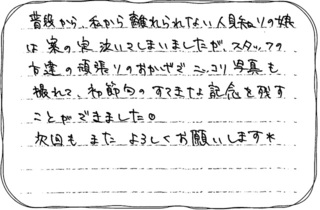 普段から、私から離れられない人見知りの娘
は案の定泣いてしまいましたが、スタッフの
方達の頑張りのおかげでニッコリ写真も
撮れて、初節句のすてきな記念を残す
ことができました。
次回もまたよろしくお願いします*